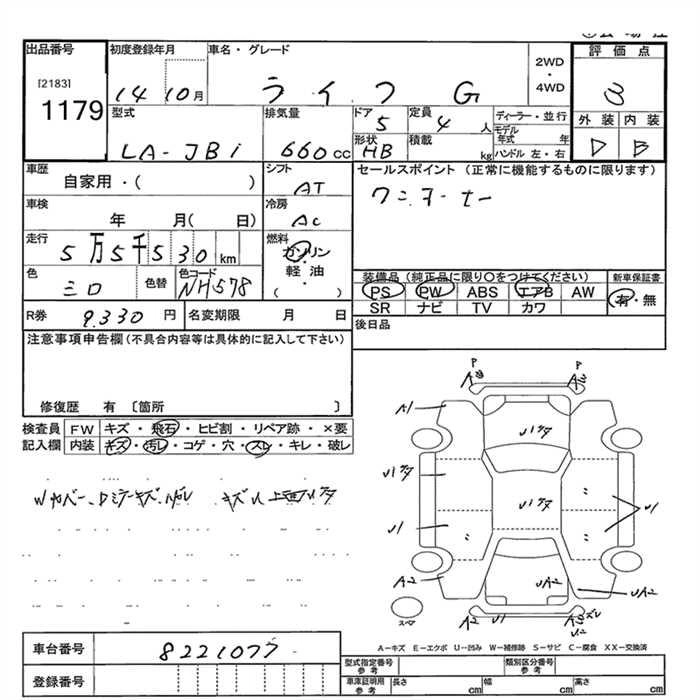 出品番号 初度登録年月 車名・グレード 2WD・4WD 評価点
[2183]
1179 14 10月 ライフ G 3
型式 排気量 ドア 5 定員 4人 ディーラー・並行 外装 内装
LA-JB1 660cc 形状 HB 積載 kg モデル年式 年 ハンドル 左・右 D B
車歴 シフト セールスポイント (正常に機能するものに限ります)
自家用・( ) AT ワンオーナー
車検 冷房
年 月( 日) AC
走行 燃料
5万5千530km ガソリン・軽油・( )
色 色替 色コード 装備品 (純正品に限り○をつけてください) 新車保証書
シロ NH578 PS PW ABS エアB AW 有・無
SR ナビ TV カワ
R券 9.330円 名変期限 月 日 後日品
注意事項申告欄(不具合内容等は具体的に記入して下さい)
修復歴 有 〔箇所 〕
検査員 FW キズ・飛石・ヒビ割・リペア跡・×要
記入欄 内装 キズ・汚レ・コゲ・穴・スレ・キレ・破レ
P P
A1
U1
U1
U1
A2 UA2 UA2
スペア
A-キズ E-エクボ U-凹み W-補修跡 S-サビ C-腐食 XX-交換済
車台番号 8221077
型式指定番号 参考 類別区分番号 参考
登録番号 車庫証明用 参考 長さ cm 幅 cm 高さ cm